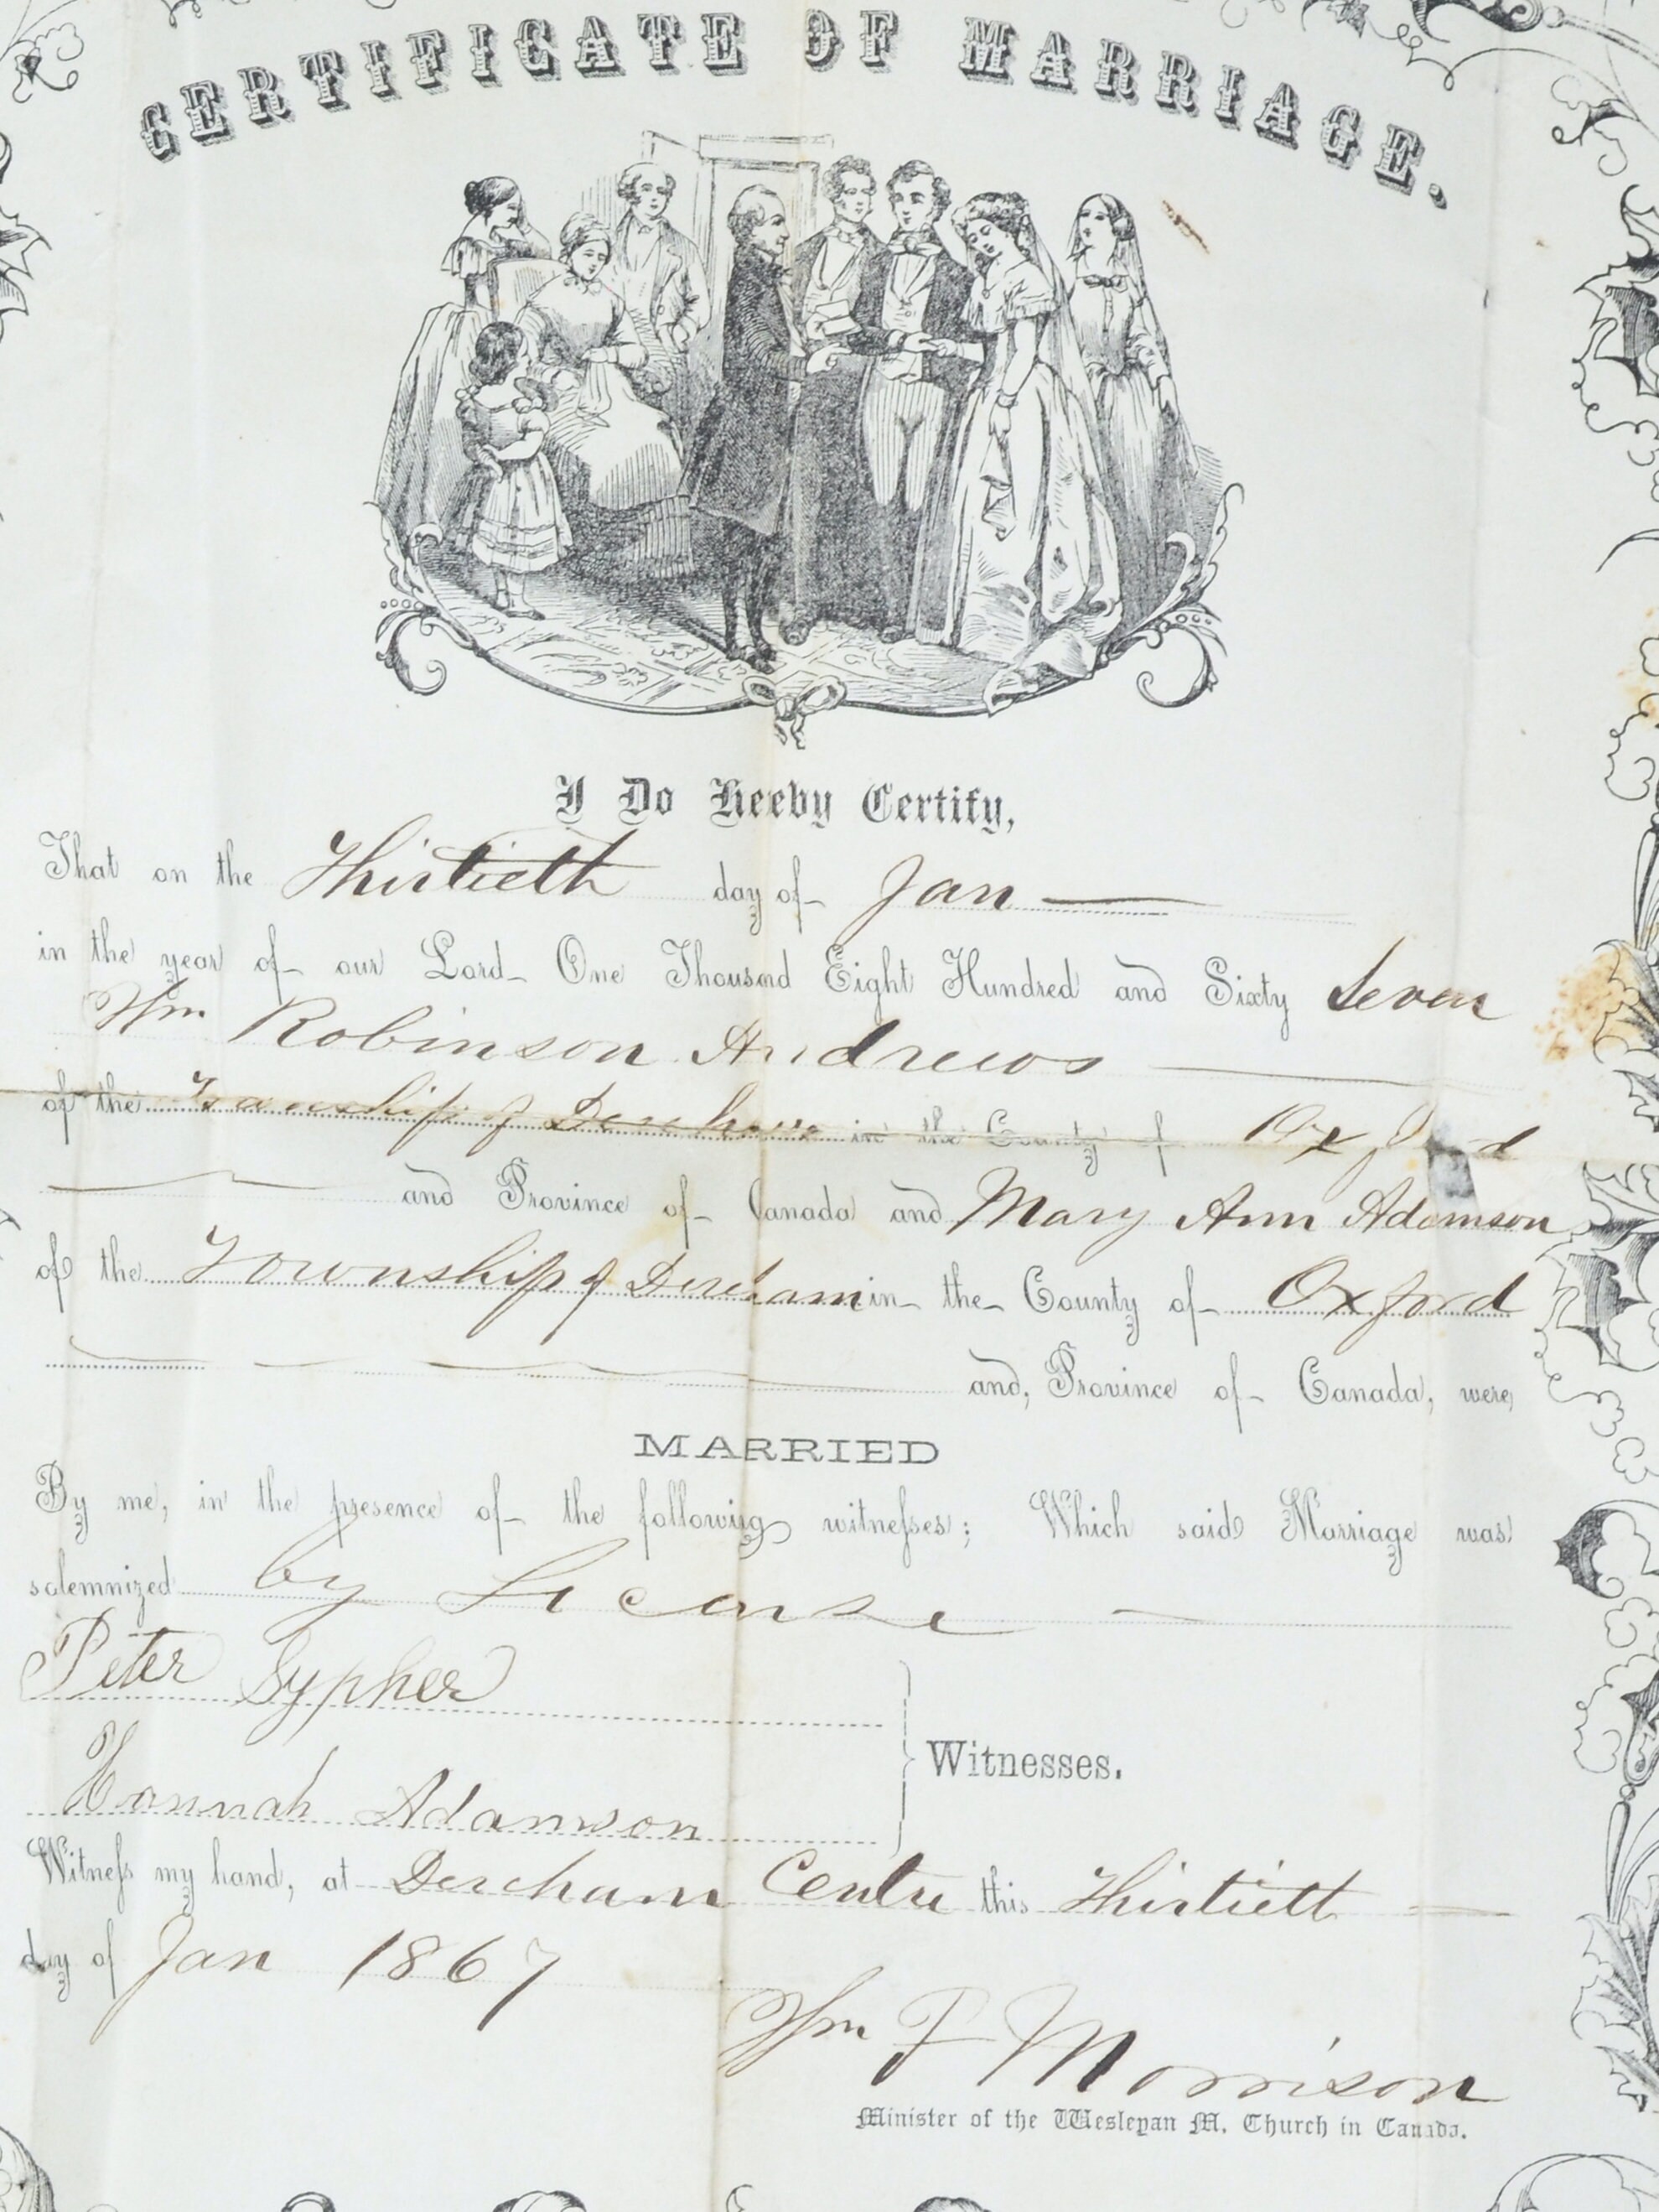 CERTIFICATE OF MARRIAGE.
I Do Heeby Certify,
That on the Thirtieth day of Jan
in the year of our Lord One Thousand Eight Hundred and Sixty Seven
Wm Robinson Andrews
of the Township of Dereham in the County of Oxford
and Province of Canada and Mary Ann Adamson
of the Township of Dereham in the County of Oxford
and, Province of Canada, were,
MARRIED
By me, in the presence of the following witnesses; Which said Marriage was
solemnized by License
Peter Sypher
Hannah Adamson
Witnesses.
Witness my hand, at Dereham Centre this Thirtieth
day of Jan 1867
Wm F Morrison
Minister of the Wesleyan M. Church in Canada.